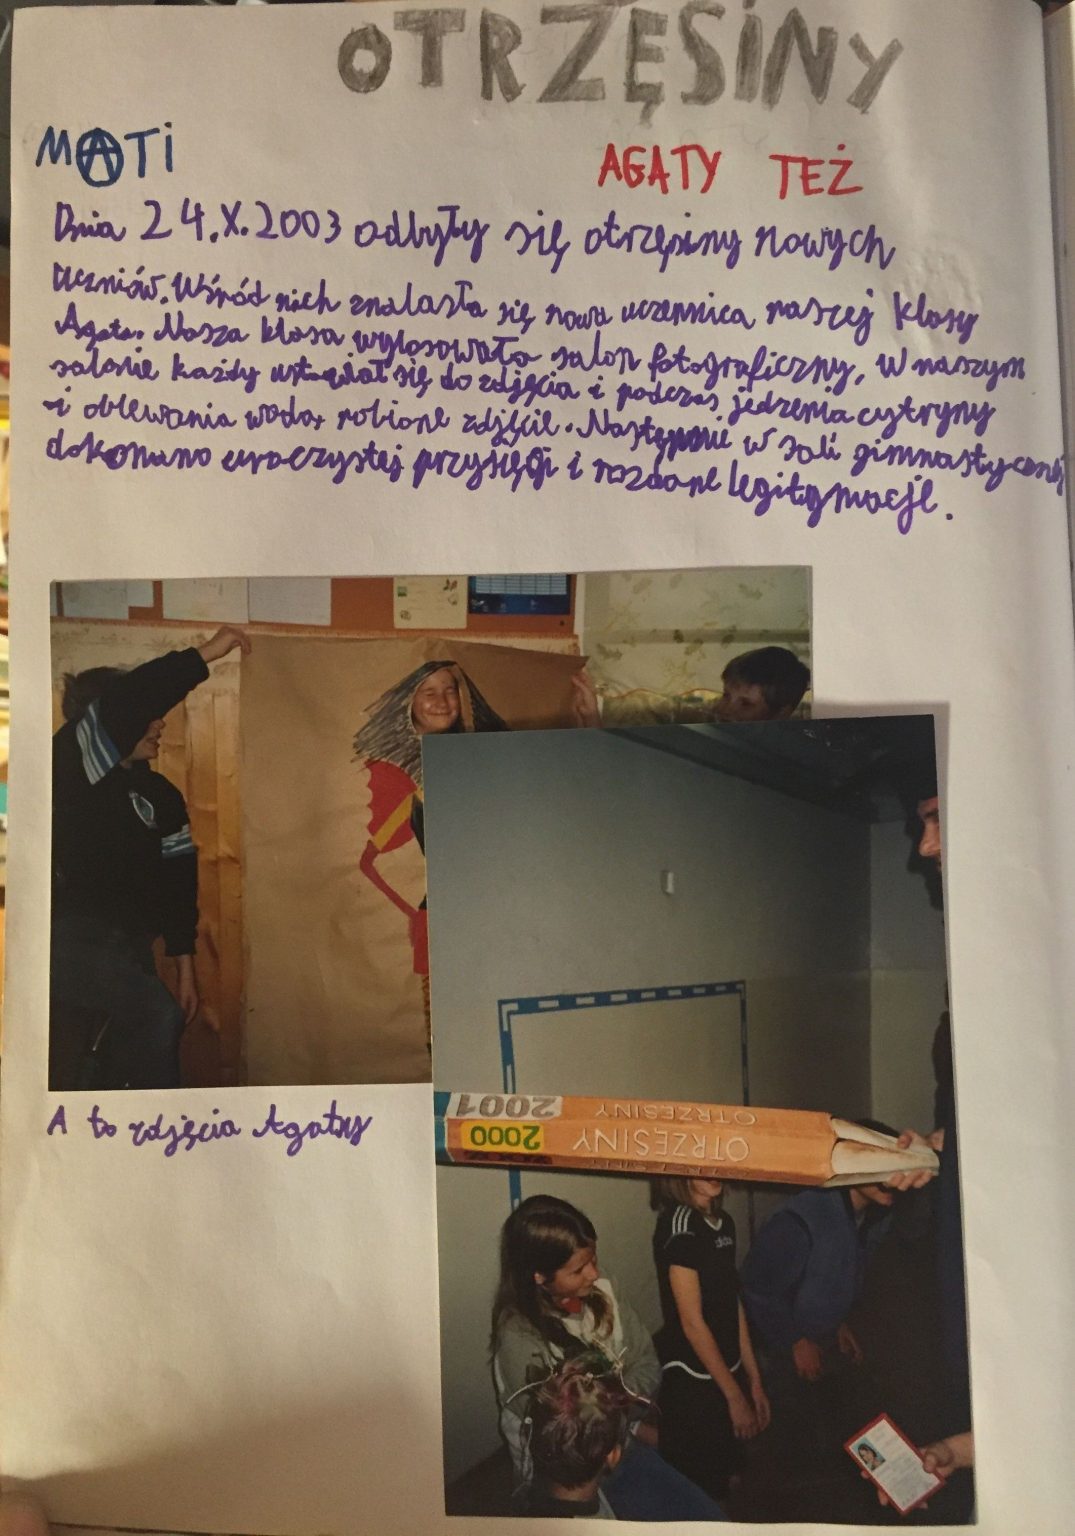 OTRZĘSINY
MATI
AGATY TEŻ
Dnia 24.X.2003 odbyły się otrzęsiny nowych
uczniów. Wśród nich znalazła się nowa uczennica naszej klasy
Agata. Nasza klasa wylosowała salon fotograficzny, w naszym
salonie każdy ustawiał się do zdjęcia i podczas jedzenia cytryny
i oblewania wodą robione zdjęcie. Następnie w sali gimnastycznej
dokonano uroczystej przysięgi i rozdane legitymacje.
A to zdjęcia Agaty
2001 OTRZĘSINY
2000 OTRZĘSINY
adidas